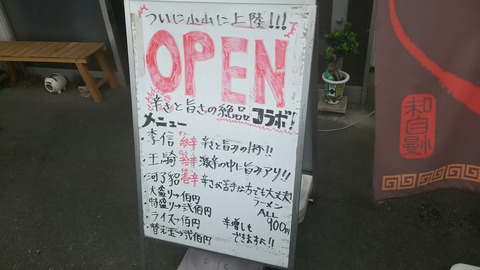 ついに小山に上陸!!!
OPEN
辛さと旨さの絶品コラボ!
メニュー
・李信 辛 辛さと旨みの1杯!!
・王騎 激辛の中に旨みアリ!!
・河了貂 辛さが苦手な方でも大丈夫!
・大盛り→百円
・特盛り→弐佰円
・ライス→百円
・替え玉→弐佰円
ラーメン
ALL
900円
辛増しも
できます!!